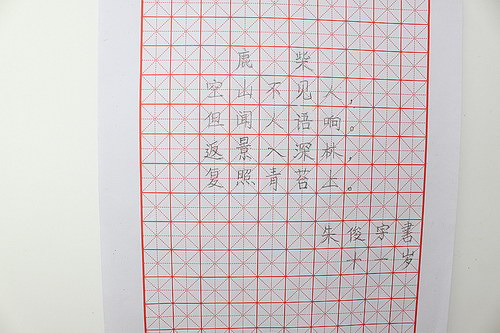 鹿柴
空山不见人，
但闻人语响。
返景入深林，
复照青苔上。
朱俊宇書
十一岁